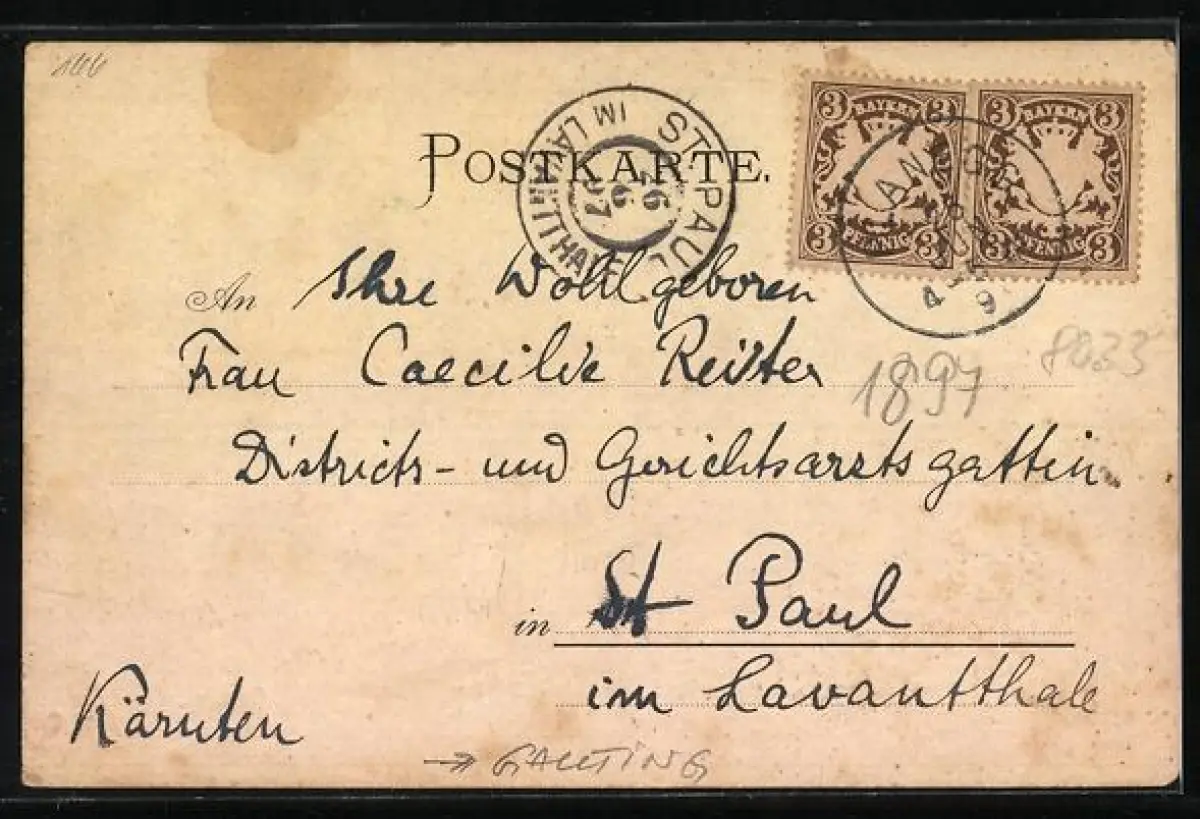 166
POSTKARTE.
ST. PAUL
IM LAVANTTHALE
6
97
3 BAYERN 3
3 PFENNIG 3
3 BAYERN 3
3 PFENNIG 3
An Ihre Wohlgeboren
Frau Caecilie Reister
1897
8033
Districts- und Gerichtsarztsgattin
in St Paul
im Lavantthale
Kärnten
→ GAUTING